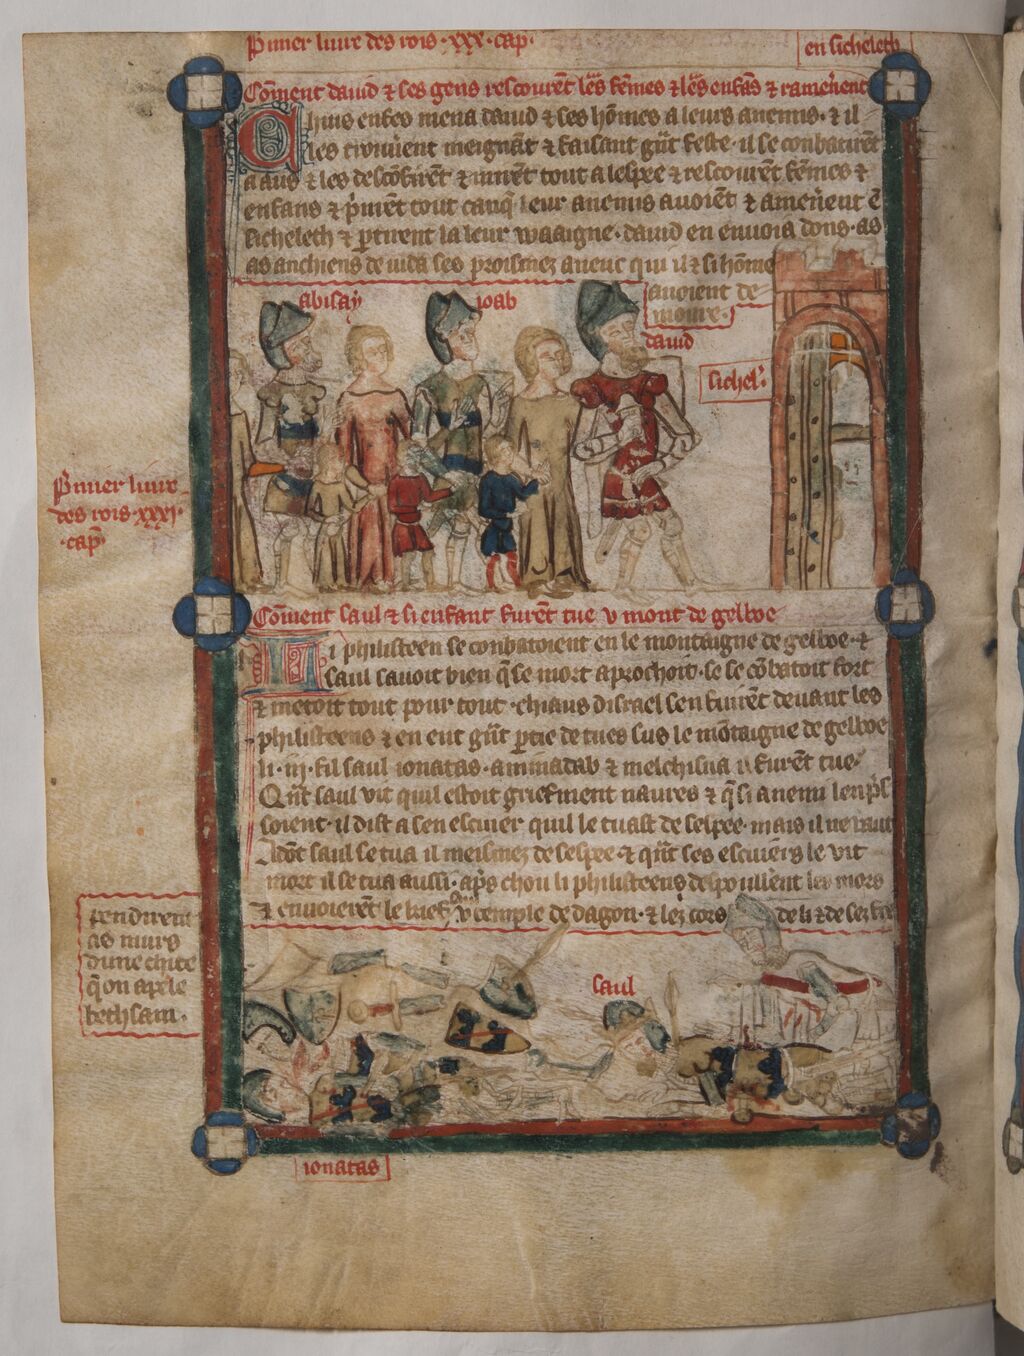 Pimer liure des rois .xxx. cap̄.
en sichelech
Cōment dauid ⁊ ses gens rescourēt les fēmes ⁊ les enfās ⁊ ramen̄ent
Chius enfes mena dauid ⁊ ses hōmes a leurs anemis. ⁊ il
les meignāt ⁊ faisant gūt feste. il se conbatirēt
a aus ⁊ les descōfirēt ⁊ mirēt tout a lespee ⁊ rescourēt fēmes ⁊
enfans ⁊ p̄irēt tout canq̄ leur anemis auoiēt ⁊ amen̄ent ē
sichelech ⁊ ptirent la leur waaigne. dauid en enuoia dons. as
as anchiens de iuda ses proismez aueuc qui il ⁊ si hōme
auoient de
moure.
abisay
ioab
dauid
sichel'.
P̄imier liure
des rois .xxxi.
cap̄.
Cōment saul ⁊ si enfant furēt tue v mont de gelboe
Li philisteen se conbatoient en le montaigne de gelboe. ⁊
saul sauoit bien q̄ se mort aprochoit. se se cōbatoit fort
⁊ metoit tout pour tout. chiaus disrael sen fuirēt deuant les
philisteens ⁊ en eut gūt ptie de tues sus le mōtaigne de gelboe
li .iij. fil saul ionatas. aminadab ⁊ melchisua i furēt tue.
Qn̄t saul vit quil estoit griefment naures ⁊ q̄ si anemi
soient. il dist a sen escuier quil le tuast de sespee. mais il ne vaut
Adōt saul se tua il meismez de sespee. ⁊ qn̄t ses escuiers le vit
mort il se tua aussi. ap̄s chou li philisteens despoullent les mors
⁊ enuoierēt le kief v temple de dagon. ⁊ lez cors de li ⁊ de sez
pendirent
as murs
dune chite
q̄ on apele
bethsam.
saul
ionatas